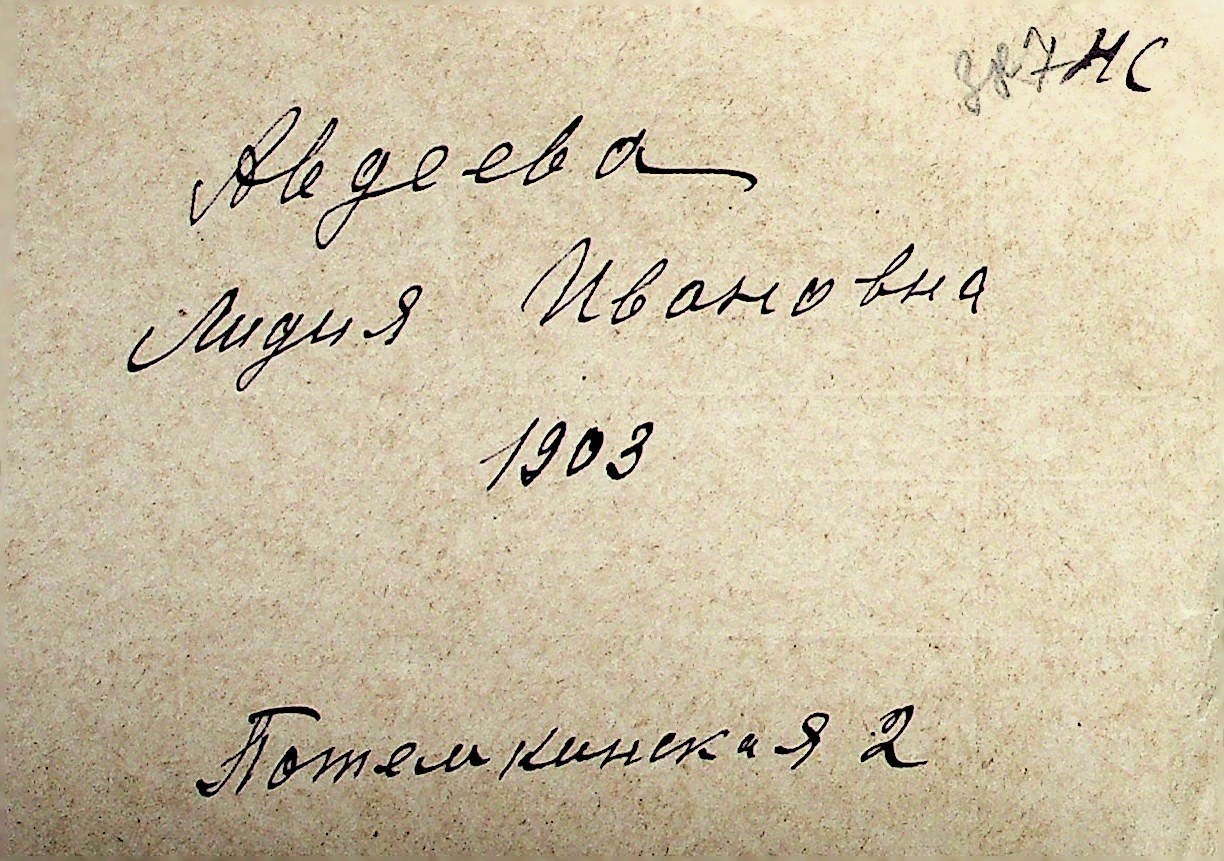 НС
Авдеева
Лидия Ивановна
1903
Потемкинская 2